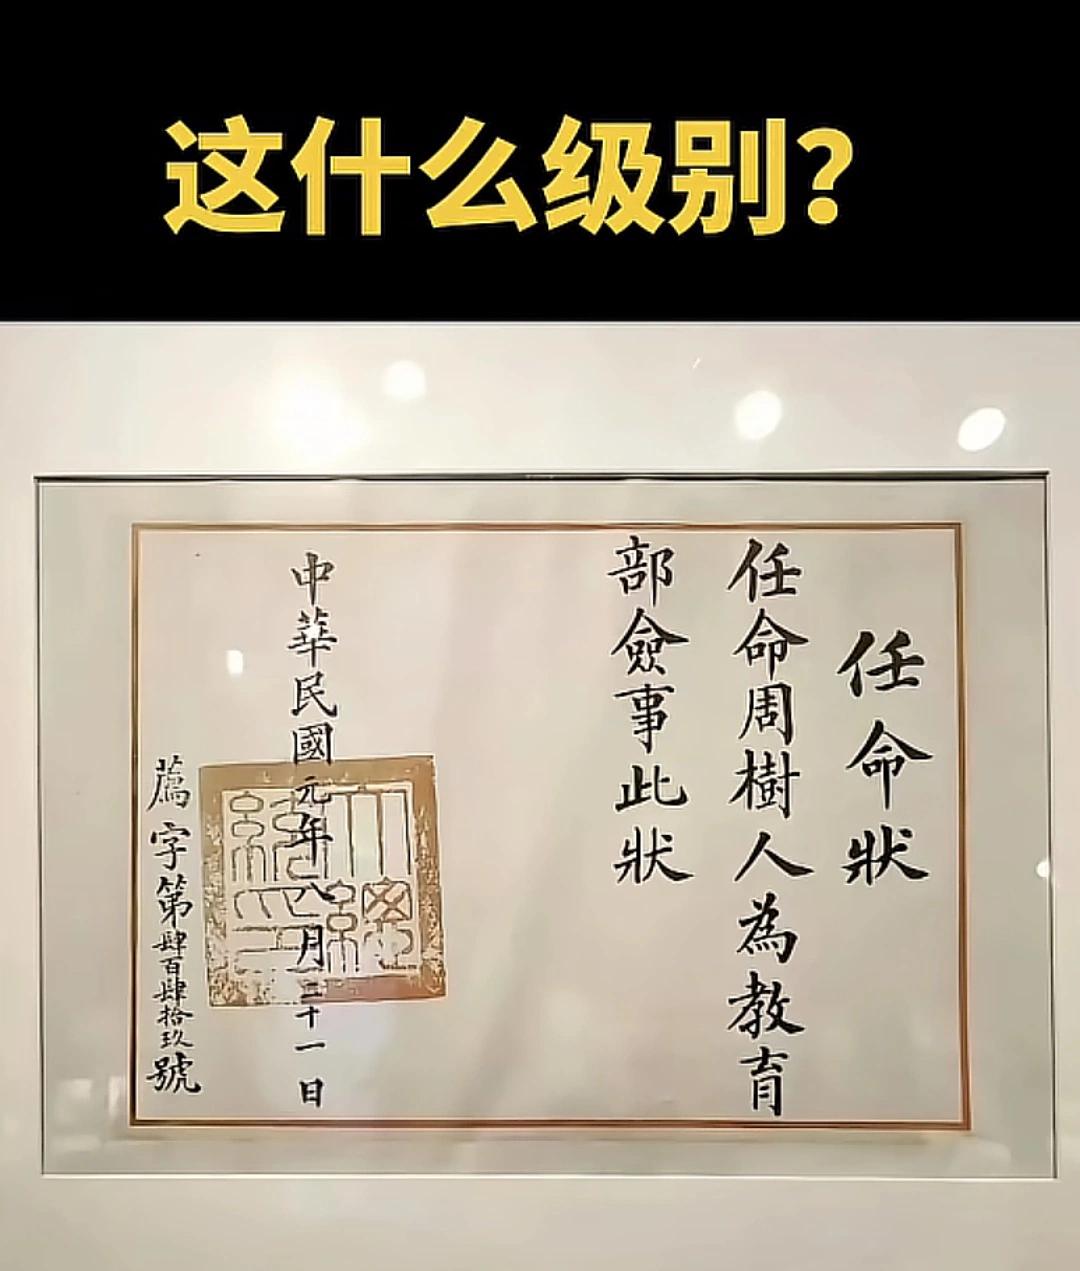 这什么级别？
任命狀
任命周樹人為教育
部僉事此狀
中華民國元年八月二十一日
薦字第肆百肆拾玖號